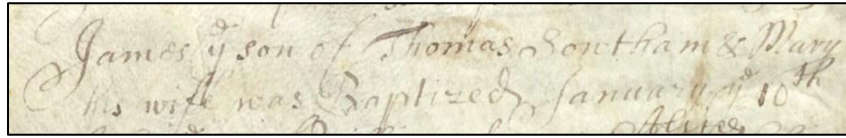 James yͤ son of Thomas Southam & Mary
his wife was Baptized January yͤ 10th